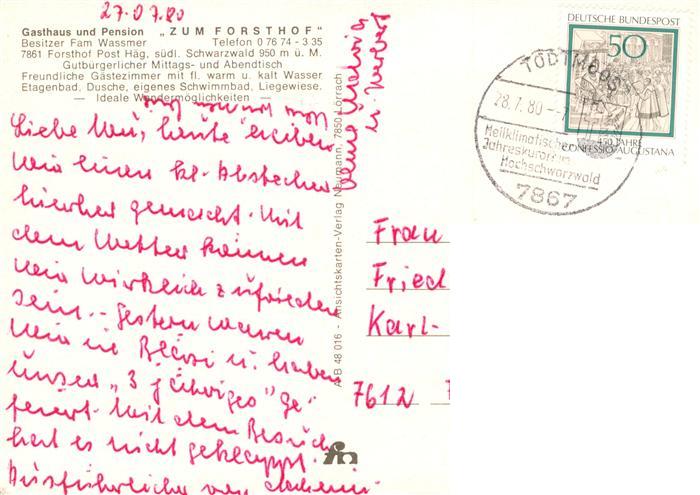 27.07.80
Gasthaus und Pension „ZUM FORSTHOF“
Besitzer Fam Wassmer Telefon 0 76 74 - 3 35
7861 Forsthof Post Häg, südl. Schwarzwald 950 m ü. M.
Gutbürgerlicher Mittags- und Abendtisch
Freundliche Gästezimmer mit fl. warm u. kalt Wasser
Etagenbad, Dusche, eigenes Schwimmbad, Liegewiese.
— Ideale Wandermöglichkeiten —
Liebe heute
wir einen kl. Abstecher
hierher gemacht. Mit
dem Wetter können
wir wirklich zufrieden
sein. - Gestern waren
wir in u. haben
unser „3 jähriges" ge-
feiert. Mit dem Besuch
hat es nicht geklappt.
Ausführliches von daheim
u. Herbert
A-B 48 016 - Ansichtskarten-Verlag Neumann, 7850 Lörrach
DEUTSCHE BUNDESPOST
50
450 JAHRE
CONFESSIO AUGUSTANA
TODTMOOS
28.7.80
Heilklimatischer
Jahreskurort im
Hochschwarzwald
7867
Frau
Fried
Karl-
7612